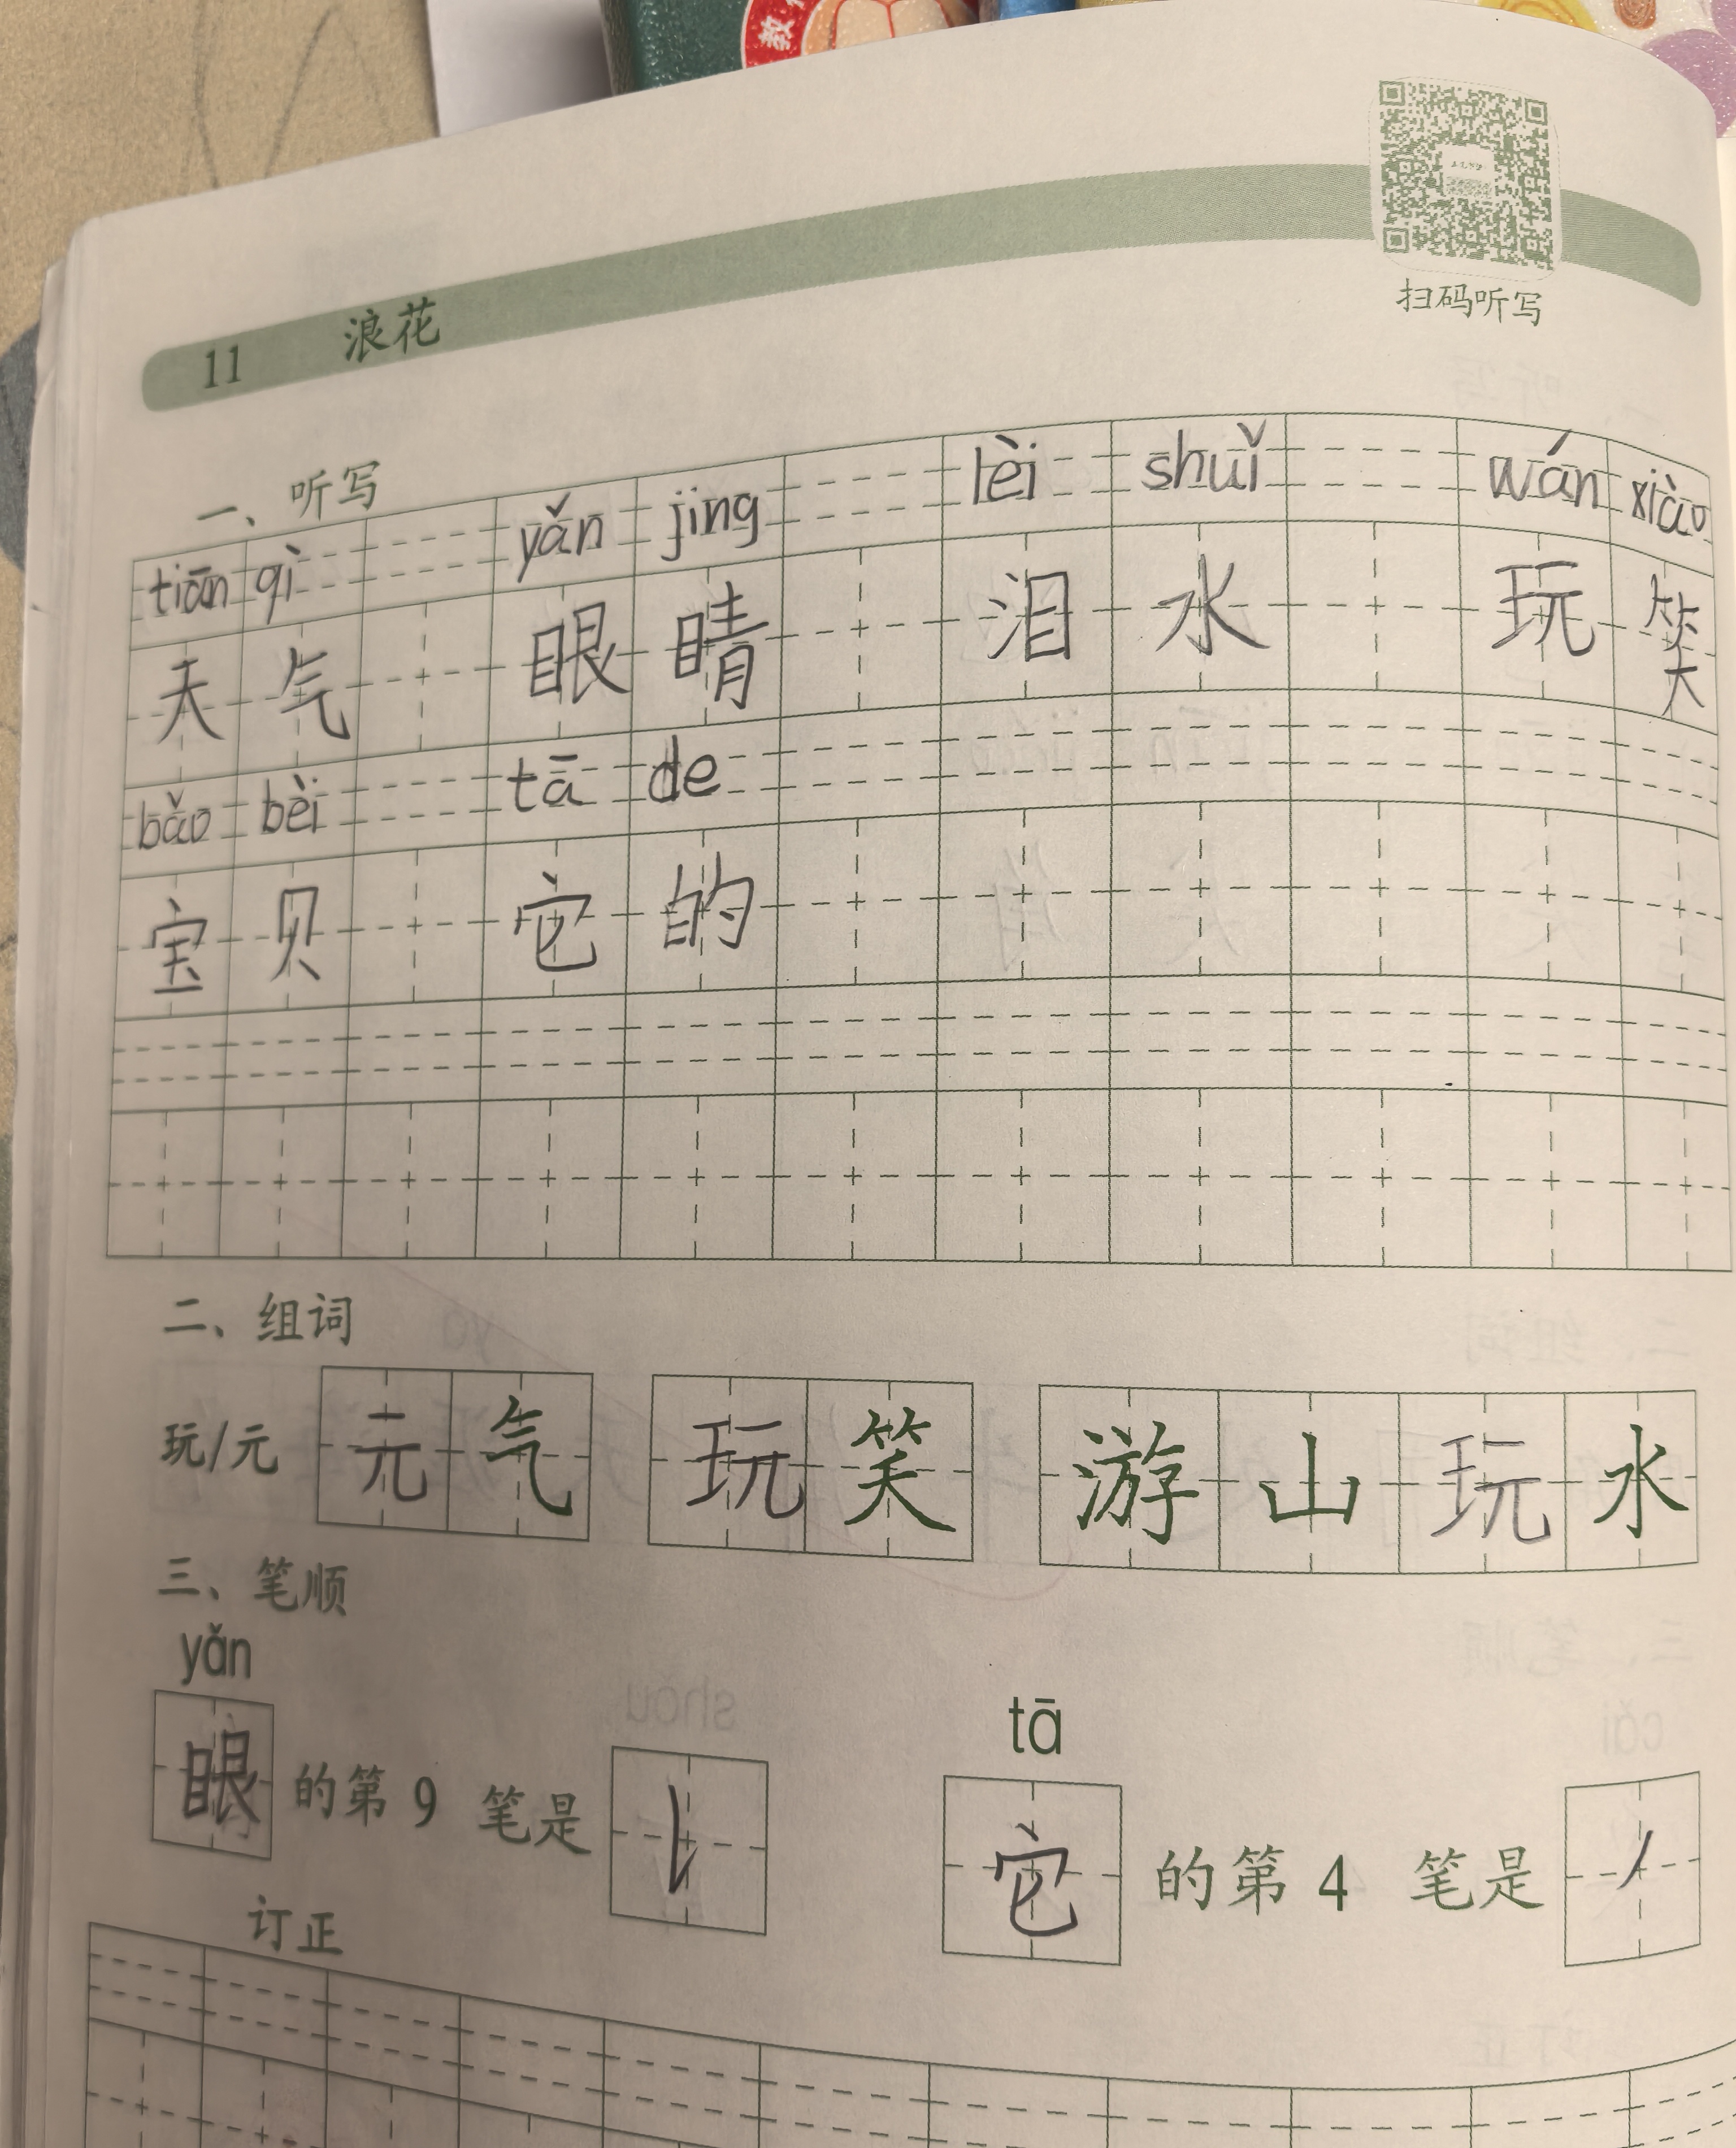 教
扫码听写
11 浪花
一、听写
tiān qì yǎn jing lèi shuǐ wán xiào
天气 眼睛 泪水 玩笑
bǎo bèi tā de
宝贝 它的
二、组词
玩/元 元气 玩笑 游山玩水
三、笔顺
yǎn tā
眼的第9笔是 它的第4笔是㇒
订正